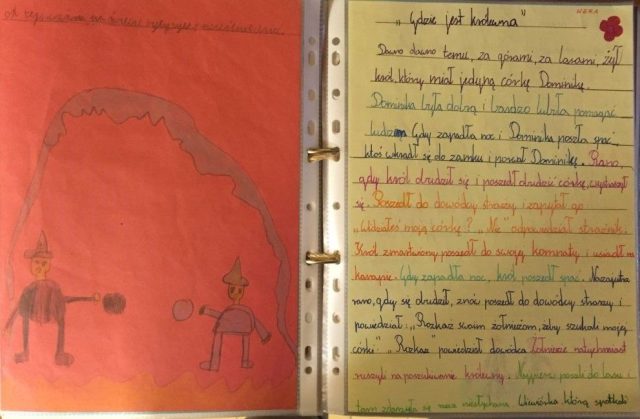 WERA
„Gdzie jest królewna"
Dawno dawno temu, za górami, za lasami, żył
król, który miał jedyną córkę Dominikę.
Dominika była dobrą i bardzo lubiła pomagać
ludziom Gdy zapadła noc i Dominika poszła spać,
ktoś wkradł się do zamku i porwał Dominikę. Rano,
gdy król obudził się i poszedł obudzić córkę, wystraszył
się. Poszedł do dowódcy straży i zapytał go
„Widziałeś moją córkę?" „Nie" odpowiedział strażnik.
Król zmartwiony poszedł do swojej komnaty i usiadł na
kanapie. Gdy zapadła noc, król poszedł spać. Nazajutrz
rano, gdy się obudził, znów poszedł do dowódcy straży i
powiedział: „Rozkaż swoim żołnierzom, żeby szukali mojej
córki" „Rozkaz" powiedział dowódca Żołnierze natychmiast
ruszyli na poszukiwanie królewny. Najpierw poszli do lasu i
tam zdarzyła się rzecz niesłychana. Wiewiórka którą spotkali